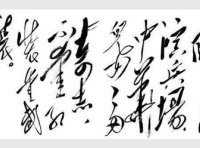 演兵場
中華
兒女多
奇志
不愛紅
裝愛武
裝